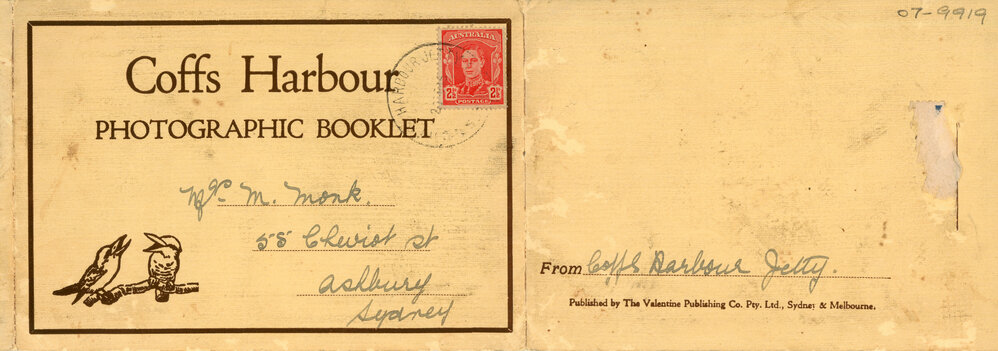 Coffs Harbour
PHOTOGRAPHIC BOOKLET
AUSTRALIA
2½
2½
POSTAGE
HARBOUR JE
Mrs M. Monk.
55 Cheviot st
Ashbury
Sydney
07-9919
From Coffs Harbour Jetty.
Published by The Valentine Publishing Co. Pty. Ltd., Sydney & Melbourne.